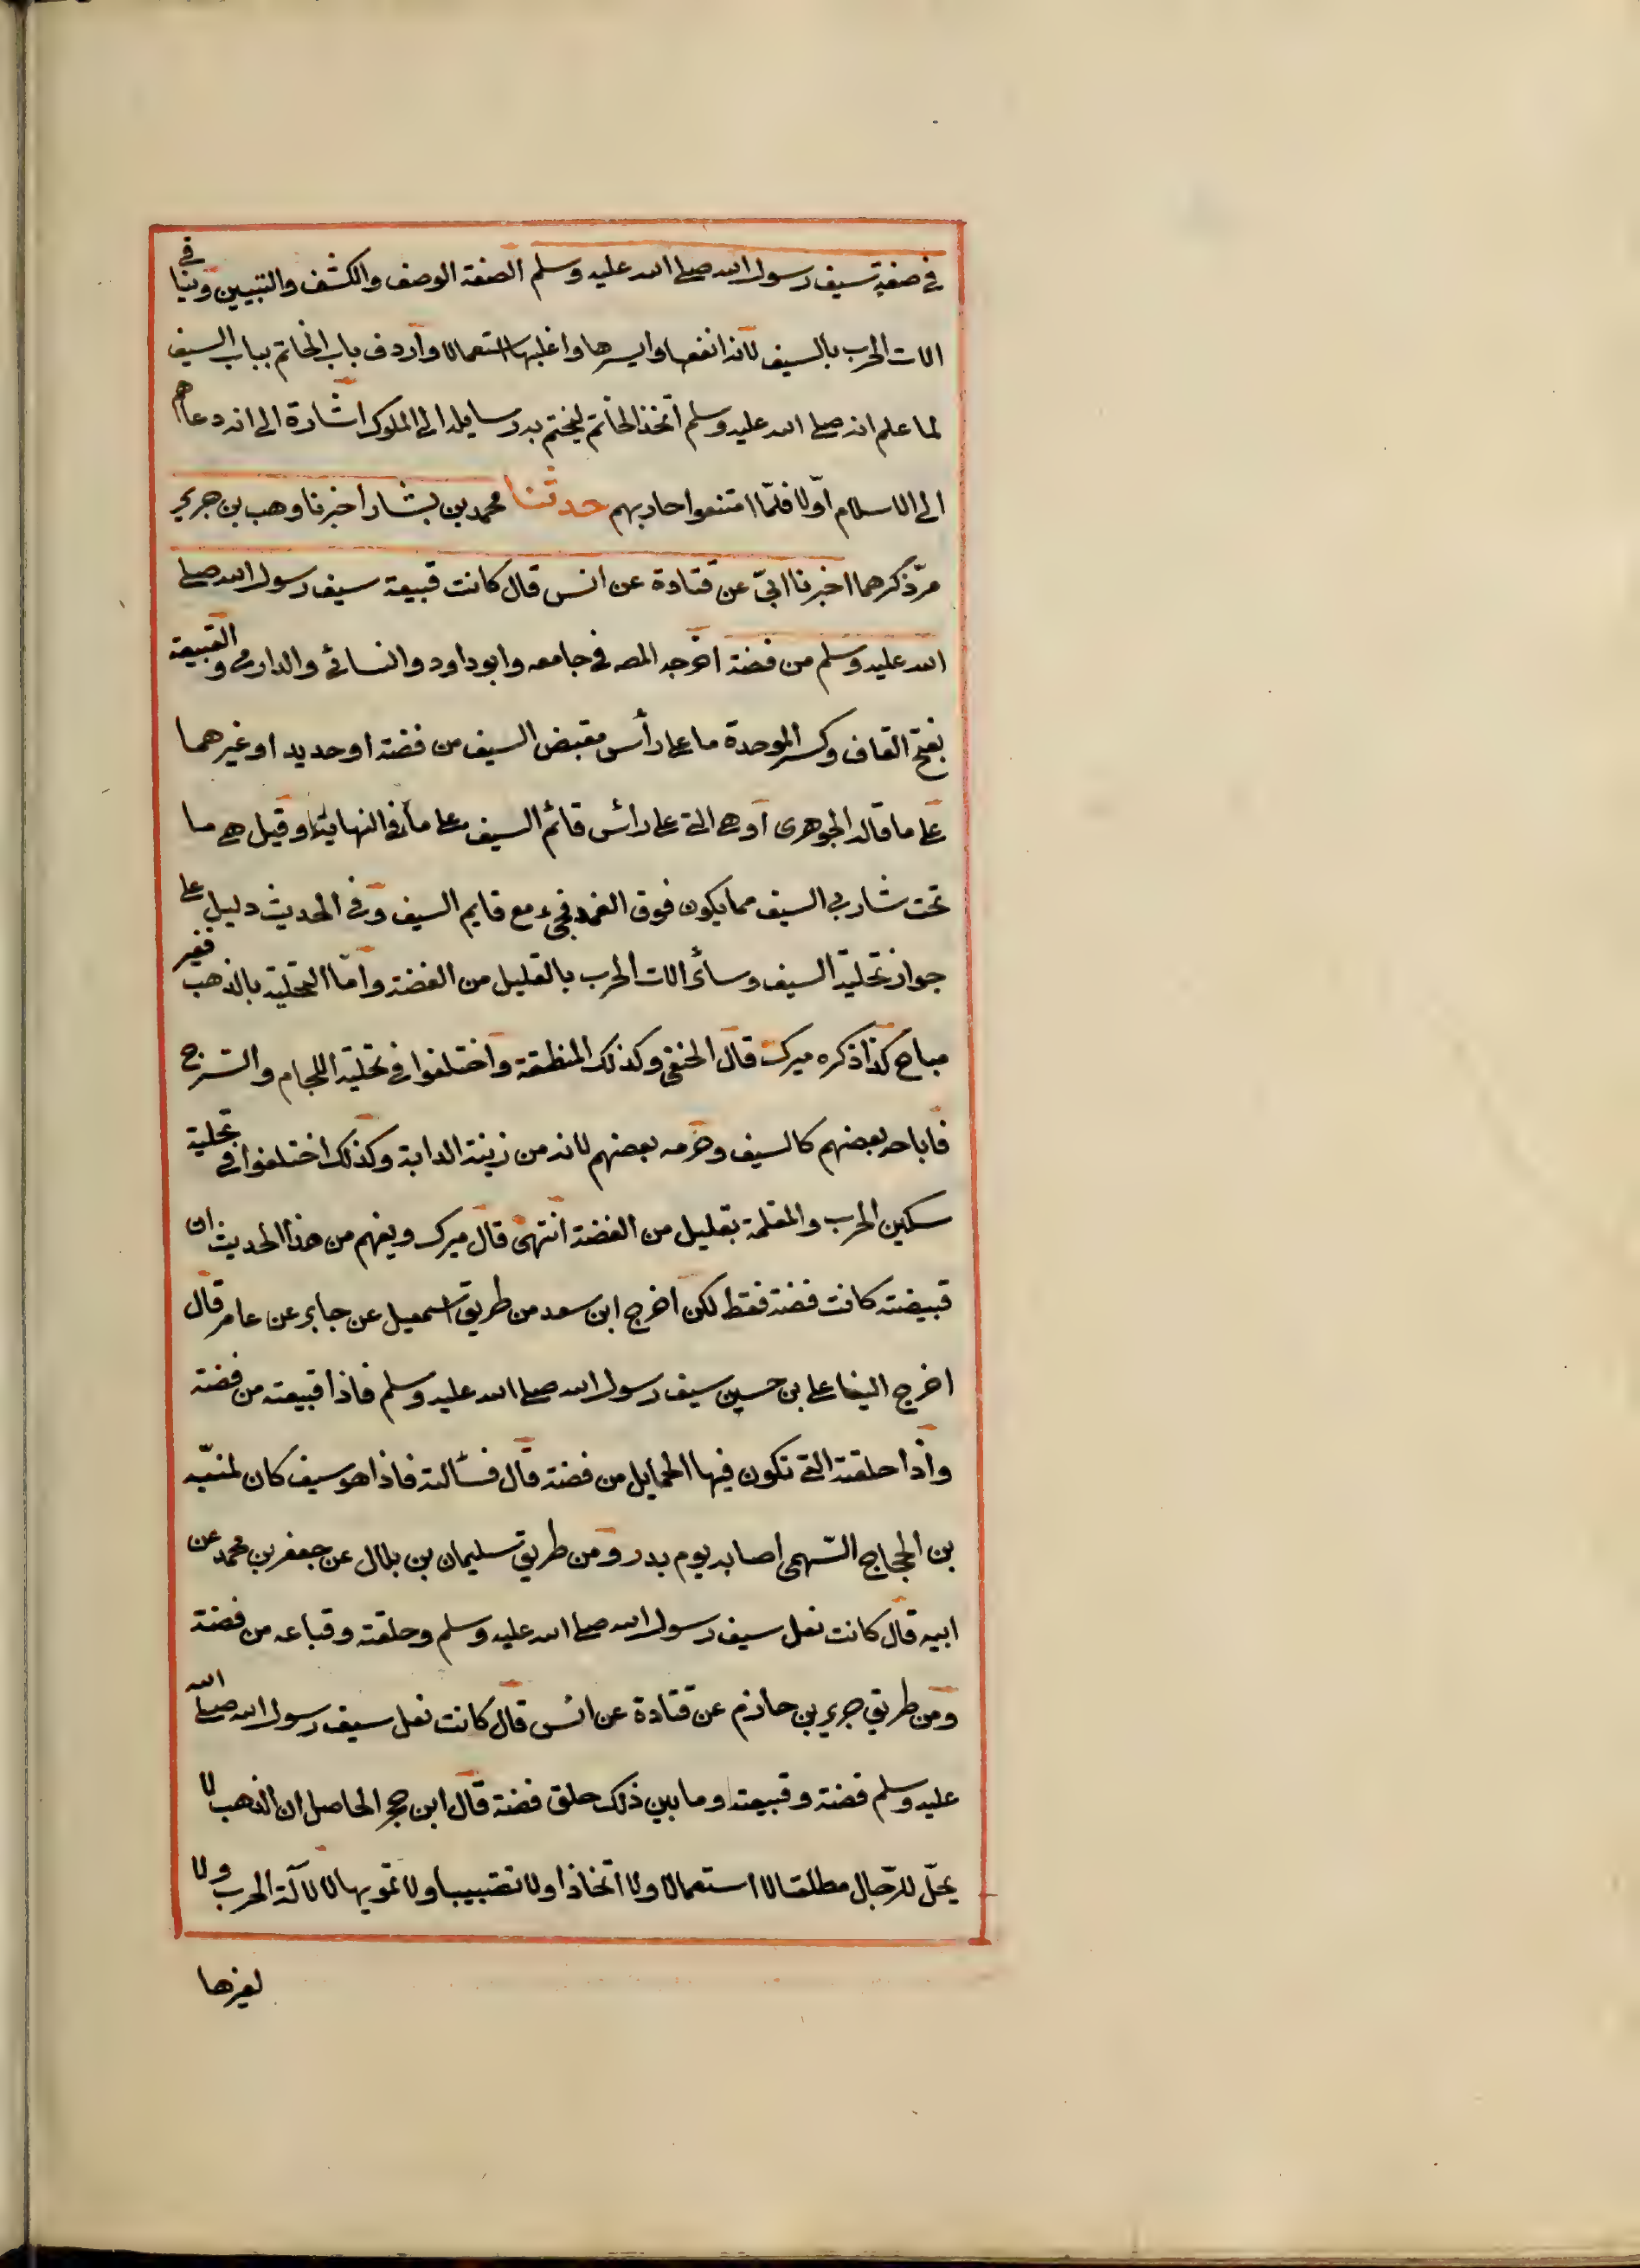 في صفة سيف رسول الله صلى الله عليه وسلم الصفة الوصف والكشف والتبيين وبدأ في
الات الحرب بالسيف لانه انفعها وايسرها واغلبها استعمالا واردف باب الخاتم بباب السيف
لما علم انه صلى الله عليه وسلم اتخذ الخاتم ليختم به رسايله الى الملوك اشارة الى انه دعاهم
الى الاسلام اوّلا فلمّا امتنعوا حاربهم حدثنا محمد بن بشار اخبرنا وهب بن جرير
مرّ ذكرهما اخبرنا ابيّ عن قتادة عن انس قال كانت قبيعة سيف رسول الله صلى
الله عليه وسلم من فضة اخرجه المصه في جامعه وابو داود والنسائي والدارمي والقبيعة
بفتح القاف وكسر الموحدة ما على رأس مقبض السيف من فضة او حديد او غيرهما
على ما قاله الجوهرى أو هي التي على رائس قائم السيف على ما في النهاية وقيل هي ما
تحت شاربي السيف مما يكون فوق الغمد فيجيء مع قايم السيف وفي الحديث دليل على
جواز تحلية السيف وسائر الات الحرب بالقليل من الفضة وامّا التحلية بالذهب فغير
مباح كذا ذكره ميرك قال الحنفي وكذلك المنطقة واختلفوا في تحلية اللجام والسّرج
فاباحه بعضهم كالسيف وحرمه بعضهم لانه من زينة الدابة وكذلك اختلفوا في تحلية
سكين الحرب والمقلمة بقليل من الفضة انتهى قال ميرك ويفهم من هذا الحديث ان
قبيضته كانت فضة فقط لكن اخرج ابن سعد من طريق اسمعيل عن جابر عن عامر قال
اخرج الينا على بن حسين سيف رسول الله صلى الله عليه وسلم فاذا قبيعته من فضة
واذا حلقته التي تكون فيها الحمايل من فضة قال فسألته فاذا هو سيف كان لمنبّه
بن الحجاج السّهمى اصابه يوم بدر ومن طريق سليمان بن بلال عن جعفر بن محمد عن
ابيه قال كانت نعل سيف رسول الله صلى الله عليه وسلم وحلقته وقباعه من فضة
ومن طريق جرير بن حازم عن قتادة عن انس قال كانت نعل سيف رسول الله صلى الله
عليه وسلم فضة وقبيعته وما بين ذلك حلق فضة قال ابن حجر الحاصل ان الذهب لا
يحلّ للرّجال مطلقا لا استعمالا ولا اتخاذا ولا تضبيبا ولا تمويها لا لآلة الحرب ولا
لغيرها